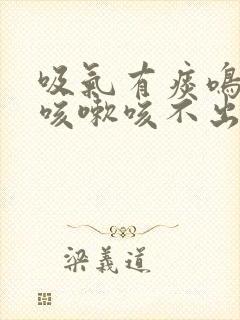 吸氣有痰鳴
咳嗽咳不出
梁義道